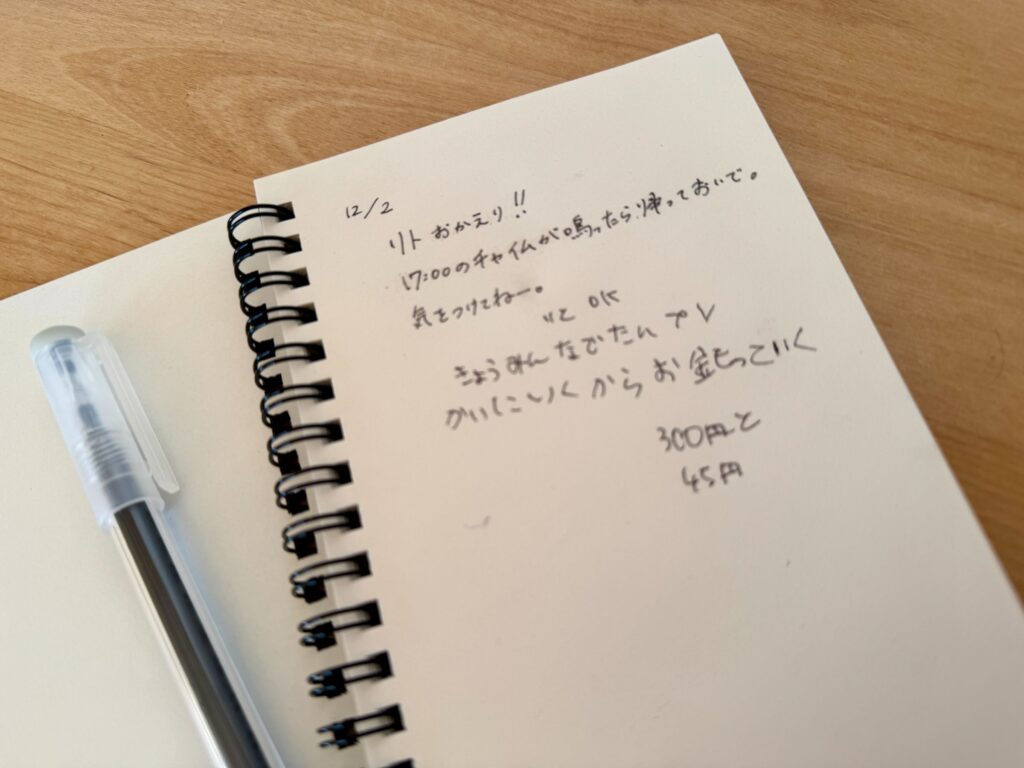 12/2
リト おかえり!!
17:00のチャイムが鳴ったら帰っておいで。
気をつけてねー。
OK
きょうみんなでたん プレ
かいにいくからお金もっていく
300円と
45円